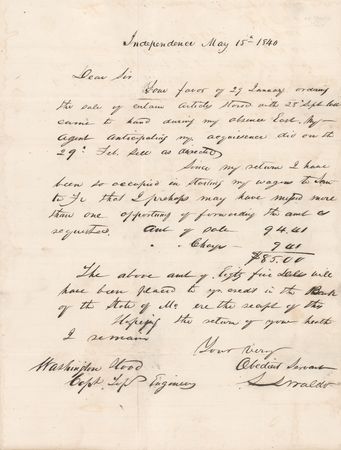 Independence May 15th 1840
Dear Sir
Your favor of 29 January ordering
the sale of certain articles stored with 28 Sept last
came to hand during my absence East, My
Agent Anticipating my acquiescence did on the
29th Feb. sell as directed
Since my return I have
been so occupied in starting my wagons to San
ta Fe that I perhaps may have missed more
than one opportunity of forwarding the amt as
requested. Amt of sale 94.41
" Charges 9.41
$85.00
The above amt of Eighty five Dolls will
have been placed to yr credit in the Bank
of the State of Mo ere the receipt of this
Hoping the return of your health
I remain
Your Very
Washington Hood Obedient Servant
Capt Top Engineers Waldo